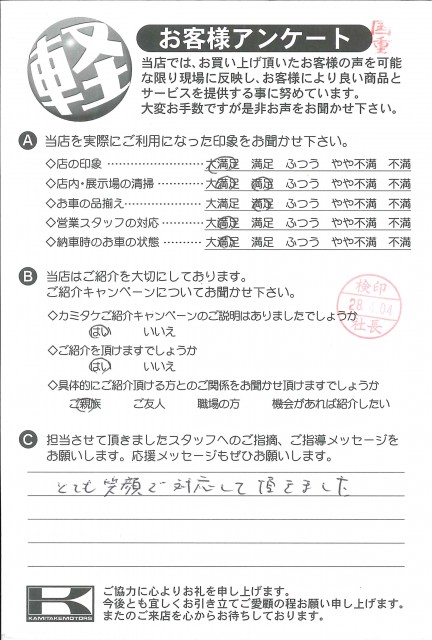 軽
お客様アンケート
当店では、お買い上げ頂いたお客様の声を可能
な限り現場に反映し、お客様により良い商品と
サービスを提供する事に努めています。
大変お手数ですが是非お声をお聞かせ下さい。
A 当店を実際にご利用になった印象をお聞かせ下さい。
◇店の印象 ‥‥‥‥‥‥‥‥ 大満足 満足 ふつう やや不満 不満
◇店内・展示場の清掃 ‥‥‥ 大満足 満足 ふつう やや不満 不満
◇お車の品揃え‥‥‥‥‥‥ 大満足 満足 ふつう やや不満 不満
◇営業スタッフの対応 ‥‥‥ 大満足 満足 ふつう やや不満 不満
◇納車時のお車の状態 ‥‥‥ 大満足 満足 ふつう やや不満 不満
B 当店はご紹介を大切にしております。
ご紹介キャンペーンについてお聞かせ下さい。
◇カミタケご紹介キャンペーンのご説明はありましたでしょうか
はい いいえ
◇ご紹介を頂けますでしょうか
はい いいえ
◇具体的にご紹介頂ける方とのご関係をお聞かせ頂けますでしょうか
ご親族 ご友人 職場の方 機会があれば紹介したい
検印
社長
C 担当させて頂きましたスタッフへのご指摘、ご指導メッセージを
お願いします。応援メッセージもぜひお願いします。
とても笑顔で対応して頂きました
K
KAMITAKEMOTORS
ご協力に心よりお礼を申し上げます。
今後とも宜しくお引き立てご愛顧の程お願い申し上げます。
またのご来店を心からお待ちしております。